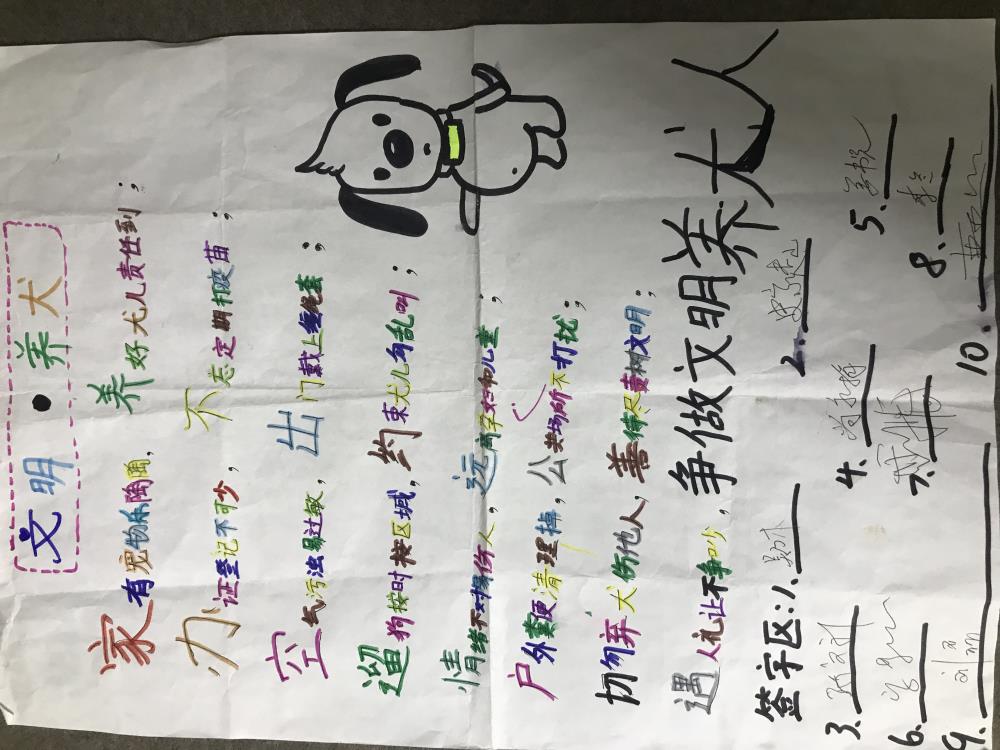 文明·养犬
家有宠物乐陶陶,养好犬儿责任到;
办证登记不可少,不忘定期打疫苗;
空气污浊易过敏,出门戴上绳套;
遛狗按时按区域,约束犬儿勿乱叫;
情绪不对易伤人,远离孕妇和儿童;
户外粪便清理掉,公共场所不打扰;
切勿弃犬伤他人,善待尽责树文明;
遇人礼让不争吵,争做文明养犬人
签字区:1. 2.
3. 4. 5.
6. 7. 8.
9. 10.